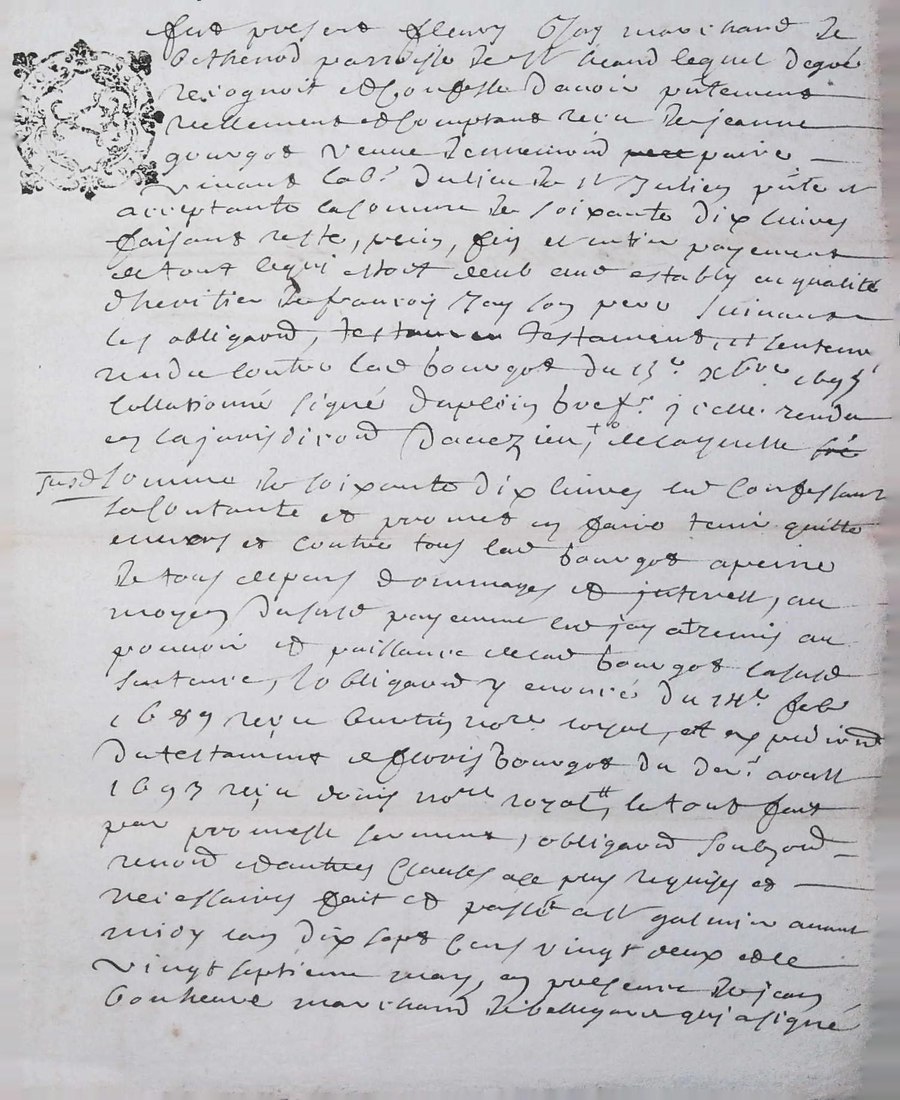 fut present fleury Jay marchand de
parroisse de St heand lequel de gré
recognoit et confesse davoir pñtement
reellement et comptant receu de jeanne
gourgot veuve
vivant lab.r du lieu de St Julien pñte et
acceptante la somme de soixante dix livres
faisant reste, plein, fin et entier payement
de tout ce qui estoit deub aud estably en qualité
dheritier de francois Jay son pere suivant
les obligaõn, testamen testament, et sentence
rendue contre lad bourgot du 13.e xbre 1693
collationné signé icelle rendue
en la jurisdicõn de laquelle
susd somme de soixante dix livres led confessant
se contante et promet en faire tenir quitte
envers et contre tous lad bourgot a peine
de tous despens dommages et interest, au
moyen du susd payement led jay a remis au
pouvoir et puissance de lad bourgot la susd
sentence, lobligaõn y enoncé du 14.e feb
1689 receu not.re royal, et expediõn
du testament de fleuris bourgot du der.r avril
1693 receu not.re royal, le tout fait
par promesse serment, obligaõn soubz
renoõn et autres clauses a ce plus requises et
necessaires fait et passé a St galmier avant
midy lan dix sept cens vingt deux et le
vingt septieme may, en presence de jean
bonheure marchand de bellegarde qui a signé